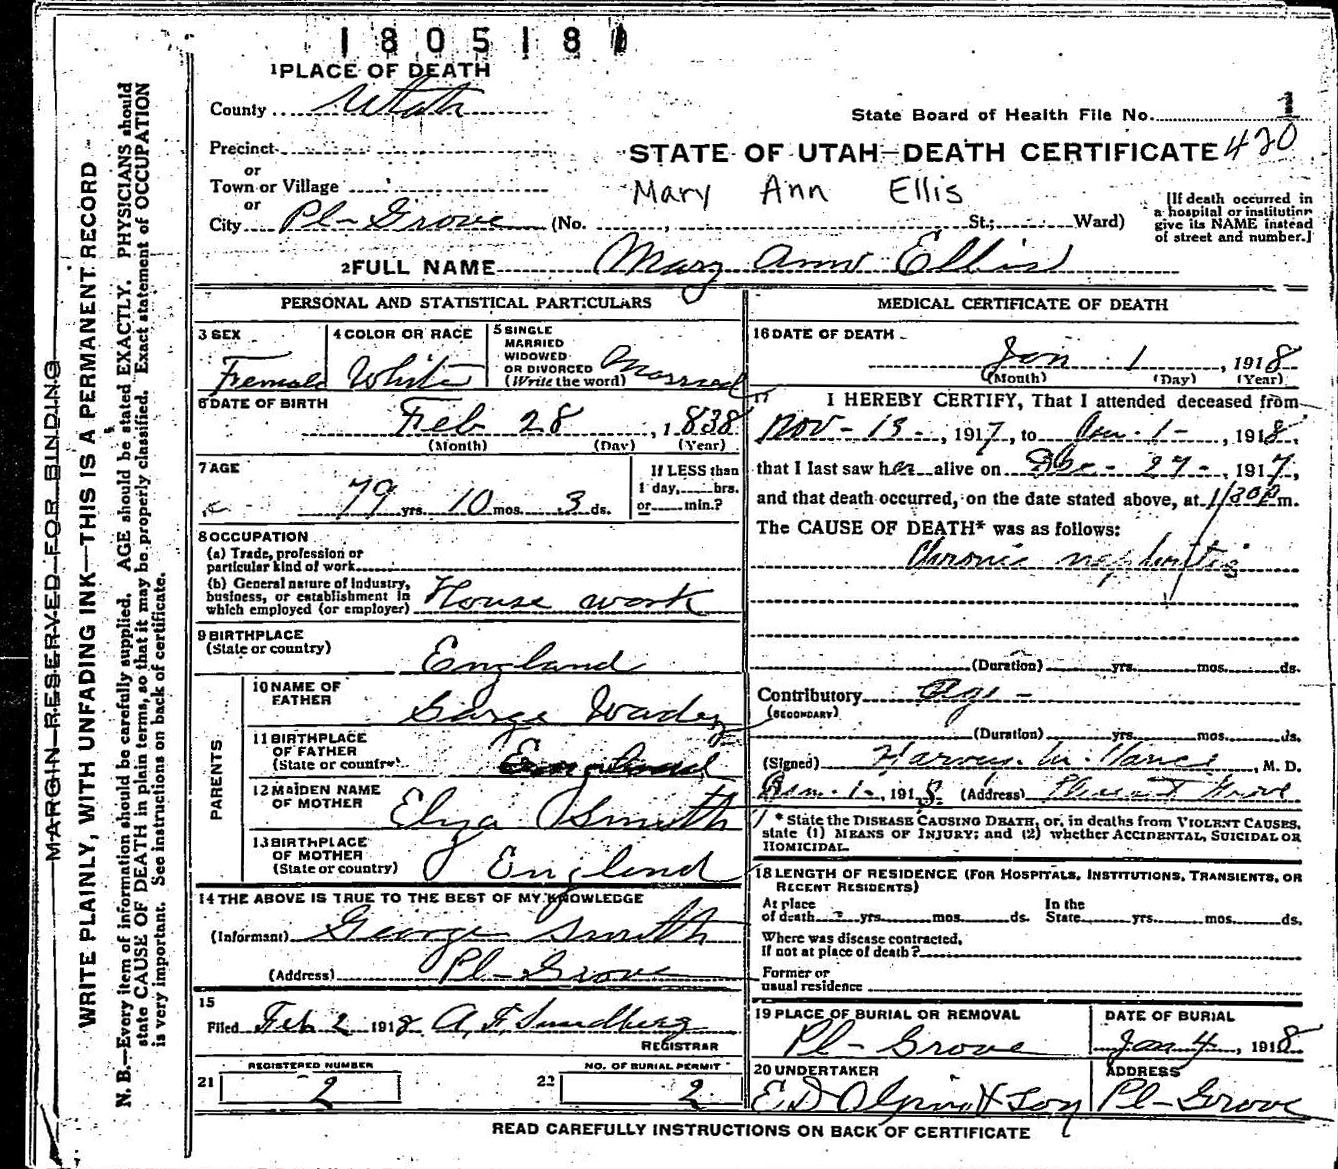 1805181
1 PLACE OF DEATH
County Utah
State Board of Health File No.
Precinct
or
Town or Village
or
City Pl-Grove (No. St.; Ward)
STATE OF UTAH—DEATH CERTIFICATE 420
Mary Ann Ellis
[If death occurred in
a hospital or institution
give its NAME instead
of street and number.]
2 FULL NAME Mary Ann Ellis
PERSONAL AND STATISTICAL PARTICULARS
3 SEX
Female
4 COLOR OR RACE
White
5 SINGLE
MARRIED
WIDOWED
OR DIVORCED
(Write the word) Married
6 DATE OF BIRTH
Feb 28, 1838
(Month) (Day) (Year)
7 AGE
79 yrs. 10 mos. 3 ds.
If LESS than
1 day, hrs.
or min.?
8 OCCUPATION
(a) Trade, profession or
particular kind of work
(b) General nature of industry,
business, or establishment in
which employed (or employer) House work
9 BIRTHPLACE
(State or country)
England
PARENTS
10 NAME OF
FATHER
11 BIRTHPLACE
OF FATHER
(State or country)
England
12 MAIDEN NAME
OF MOTHER
Smith
13 BIRTHPLACE
OF MOTHER
(State or country)
England
14 THE ABOVE IS TRUE TO THE BEST OF MY KNOWLEDGE
(Informant) George Smith
(Address) Pl-Grove
15
Filed Feb 2 1918 A. F. Sundberg
REGISTRAR
REGISTERED NUMBER
21 2
NO. OF BURIAL PERMIT
22 2
MEDICAL CERTIFICATE OF DEATH
16 DATE OF DEATH
Jan 1, 1918
(Month) (Day) (Year)
17 I HEREBY CERTIFY, That I attended deceased from
Nov-13-, 1917, to Jan-1-, 1918,
that I last saw her alive on Dec-27-, 1917,
and that death occurred, on the date stated above, at 1/30 P m.
The CAUSE OF DEATH* was as follows:
Chronic nephritis
(Duration) yrs. mos. ds.
Contributory Age-
(SECONDARY)
(Duration) yrs. mos. ds.
(Signed) , M. D.
Jan-1-, 1918. (Address) Pleasant Grove
* State the DISEASE CAUSING DEATH, or, in deaths from VIOLENT CAUSES,
state (1) MEANS OF INJURY; and (2) whether ACCIDENTAL, SUICIDAL OR
HOMICIDAL.
18 LENGTH OF RESIDENCE (FOR HOSPITALS, INSTITUTIONS, TRANSIENTS, OR
RECENT RESIDENTS)
At place
of death yrs. mos. ds.
In the
State yrs. mos. ds.
Where was disease contracted,
if not at place of death?
Former or
usual residence
19 PLACE OF BURIAL OR REMOVAL
Pl-Grove
DATE OF BURIAL
Jan 4, 1918
20 UNDERTAKER
E D Olpin & Son
ADDRESS
Pl-Grove
READ CAREFULLY INSTRUCTIONS ON BACK OF CERTIFICATE
MARGIN RESERVED FOR BINDING
WRITE PLAINLY, WITH UNFADING INK—THIS IS A PERMANENT RECORD
N. B.—Every item of information should be carefully supplied. AGE should be stated EXACTLY. PHYSICIANS should
state CAUSE OF DEATH in plain terms, so that it may be properly classified. Exact statement of OCCUPATION
is very important. See instructions on back of certificate.